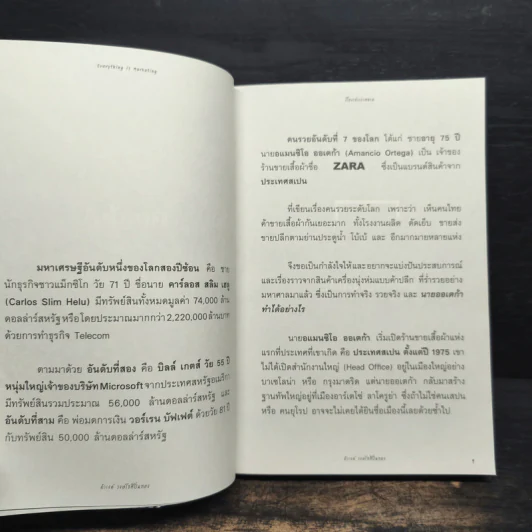 everything is marketing
มหาเศรษฐีอันดับหนึ่งของโลกสองปีซ้อน คือ ชาย
นักธุรกิจชาวแม็กซิโก วัย 71 ปี ชื่อนาย คาร์ลอส สลิม เฮลู
(Carlos Slim Helu) มีทรัพย์สินทั้งหมดมูลค่า 74,000 ล้าน
ดอลล่าร์สหรัฐ หรือโดยประมาณมากกว่า 2,220,000 ล้านบาท
ด้วยการทำธุรกิจ Telecom
ตามมาด้วย อันดับที่สอง คือ บิลล์ เกตส์ วัย 55 ปี
หนุ่มใหญ่เจ้าของบริษัท Microsoft จากประเทศสหรัฐอเมริกา
มีทรัพย์สินรวมประมาณ 56,000 ล้านดอลล่าร์สหรัฐ และ
อันดับที่สาม คือ พ่อมดการเงิน วอร์เรน บัฟเฟต์ ด้วยวัย 81 ปี
กับทรัพย์สิน 50,000 ล้านดอลล่าร์สหรัฐ
คนรวยอันดับที่ 7 ของโลก ได้แก่ ชายอายุ 75 ปี
นายอแมนซิโอ ออเตก้า (Amancio Ortega) เป็น เจ้าของ
ร้านขายเสื้อผ้าชื่อ ZARA ซึ่งเป็นแบรนด์สินค้าจาก
ประเทศสเปน
ที่เขียนเรื่องคนรวยระดับโลก เพราะว่า เห็นคนไทย
ค้าขายเสื้อผ้ากันเยอะมาก ทั้งโรงงานผลิต ตัดเย็บ ขายส่ง
ขายปลีกตามย่านประตูน้ำ โบ๊เบ๊ และ อีกมากมายหลายแห่ง
จึงขอเป็นกำลังใจให้และอยากจะแบ่งปันประสบการณ์
และเรื่องราวจากสินค้าเครื่องนุ่งห่มแบบค้าปลีก ที่ร่ำรวยอย่าง
มหาศาลมาแล้ว ซึ่งเป็นการทำจริง รวยจริง และ นายออเตก้า
ทำได้อย่างไร
นายอแมนซิโอ ออเตก้า เริ่มเปิดร้านขายเสื้อผ้าแห่ง
แรกที่ประเทศที่เขาเกิด คือ ประเทศสเปน ตั้งแต่ปี 1975 เขา
ไม่ได้เปิดสำนักงานใหญ่ (Head Office) อยู่ในเมืองใหญ่อย่าง
บาเซโลน่า หรือ กรุงมาดริด แต่นายออเตก้า กลับมาสร้าง
ฐานทัพใหญ่อยู่ที่เมืองอาร์เตโซ่ ลาโครูย่า ซึ่งถ้าไม่ใช่คนสเปน
หรือ คนยุโรป อาจจะไม่เคยได้ยินชื่อเมืองนี้เลยด้วยซ้ำไป